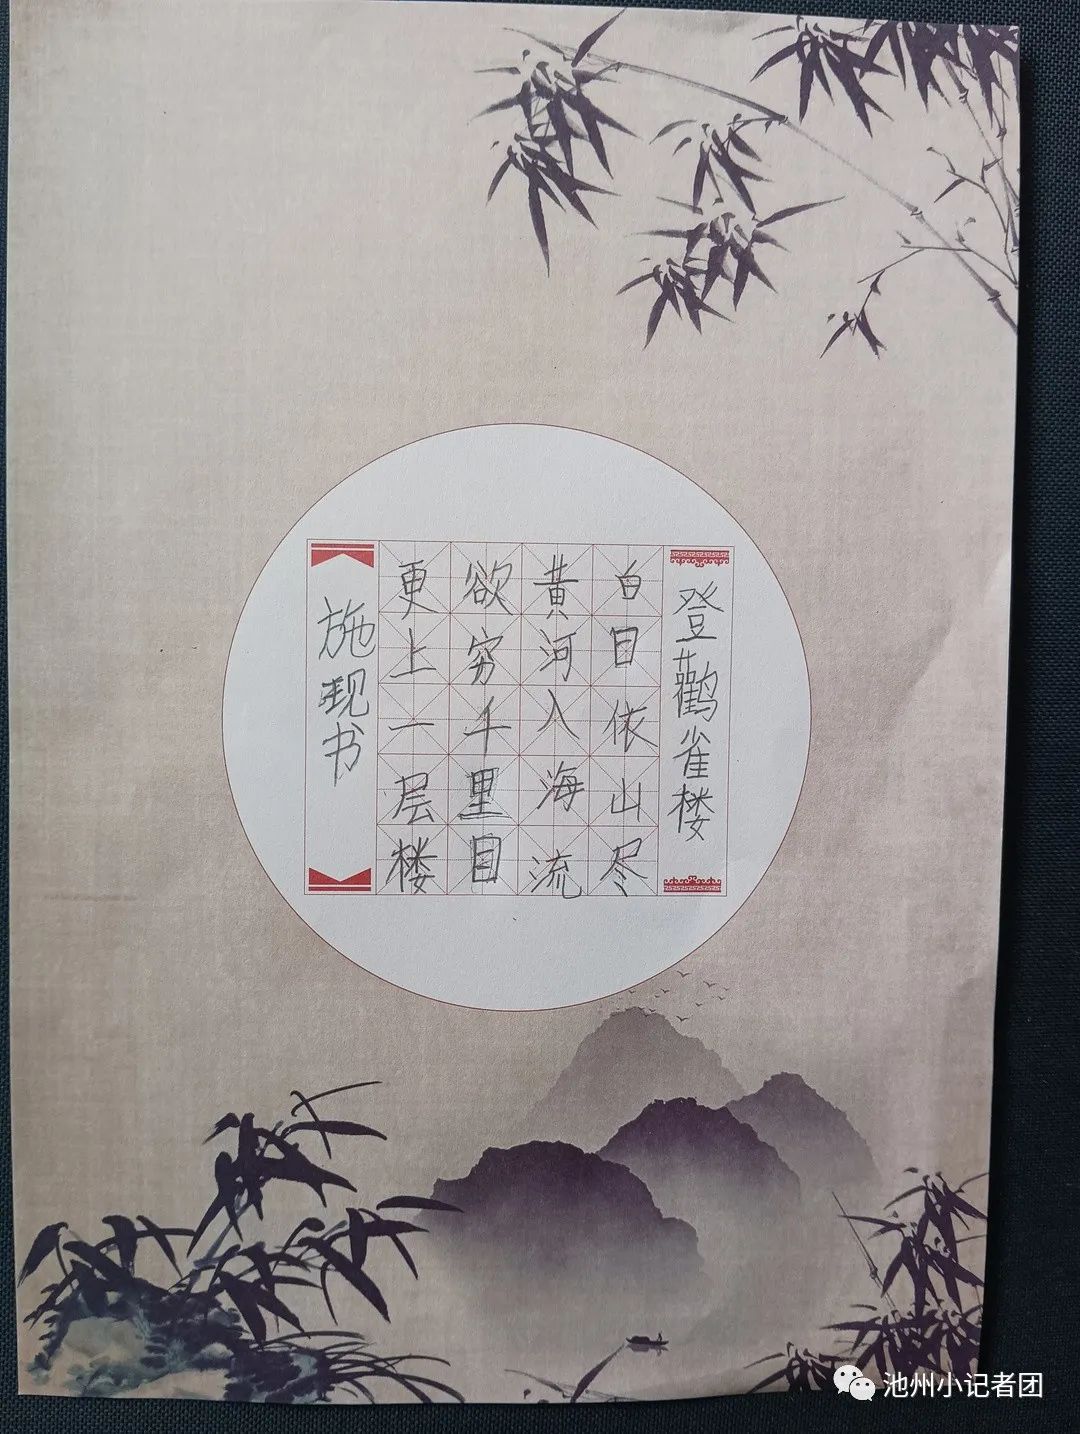 登鹳雀楼
白目依山尽
黄河入海流
欲穷千里目
更上一层楼
施现书
池州小记者团